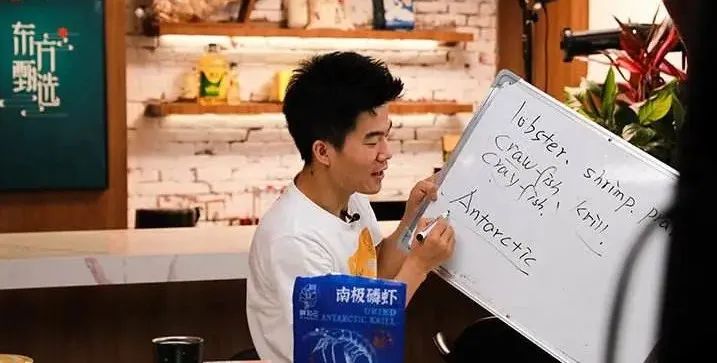 东方
甄选
lobster. shrimp. pra
crawfish.
crayfish. krill.
Antarctic
南极磷虾
DRIED
ANTARCTIC KRILL